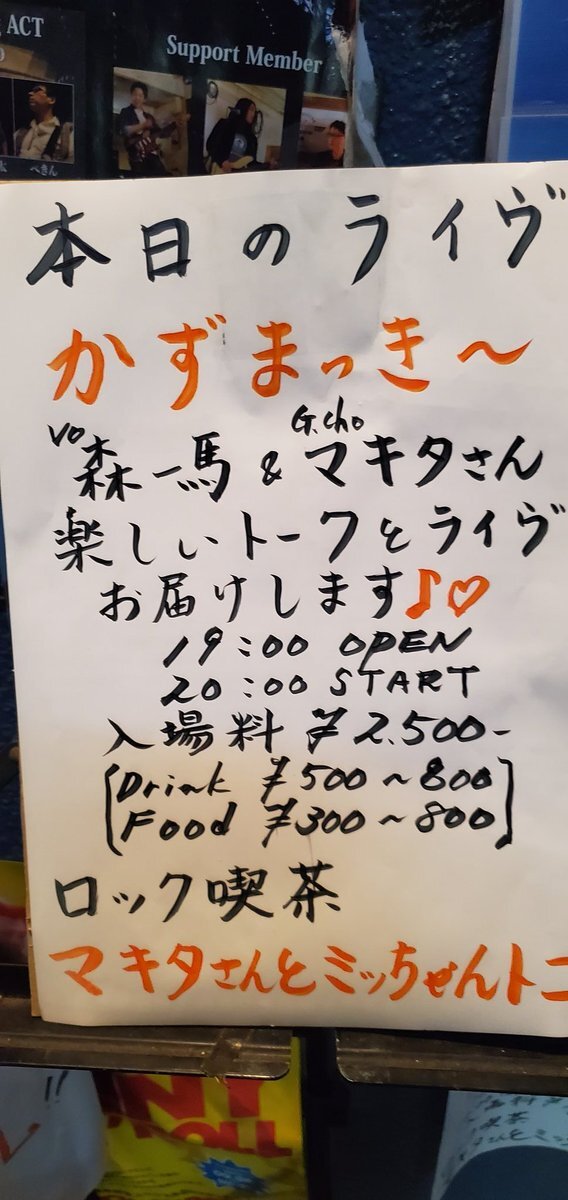 ACT
Support Member
べきん
本日のライヴ
かずまっき〜
vo G.cho
森一馬 & マキタさん
楽しいトークとライヴ
お届けします♪♡
19:00 OPEN
20:00 START
入場料 ¥2.500-
[Drink ¥500〜800
Food ¥300〜800]
ロック喫茶
マキタさんとミッちゃんトコ
!!